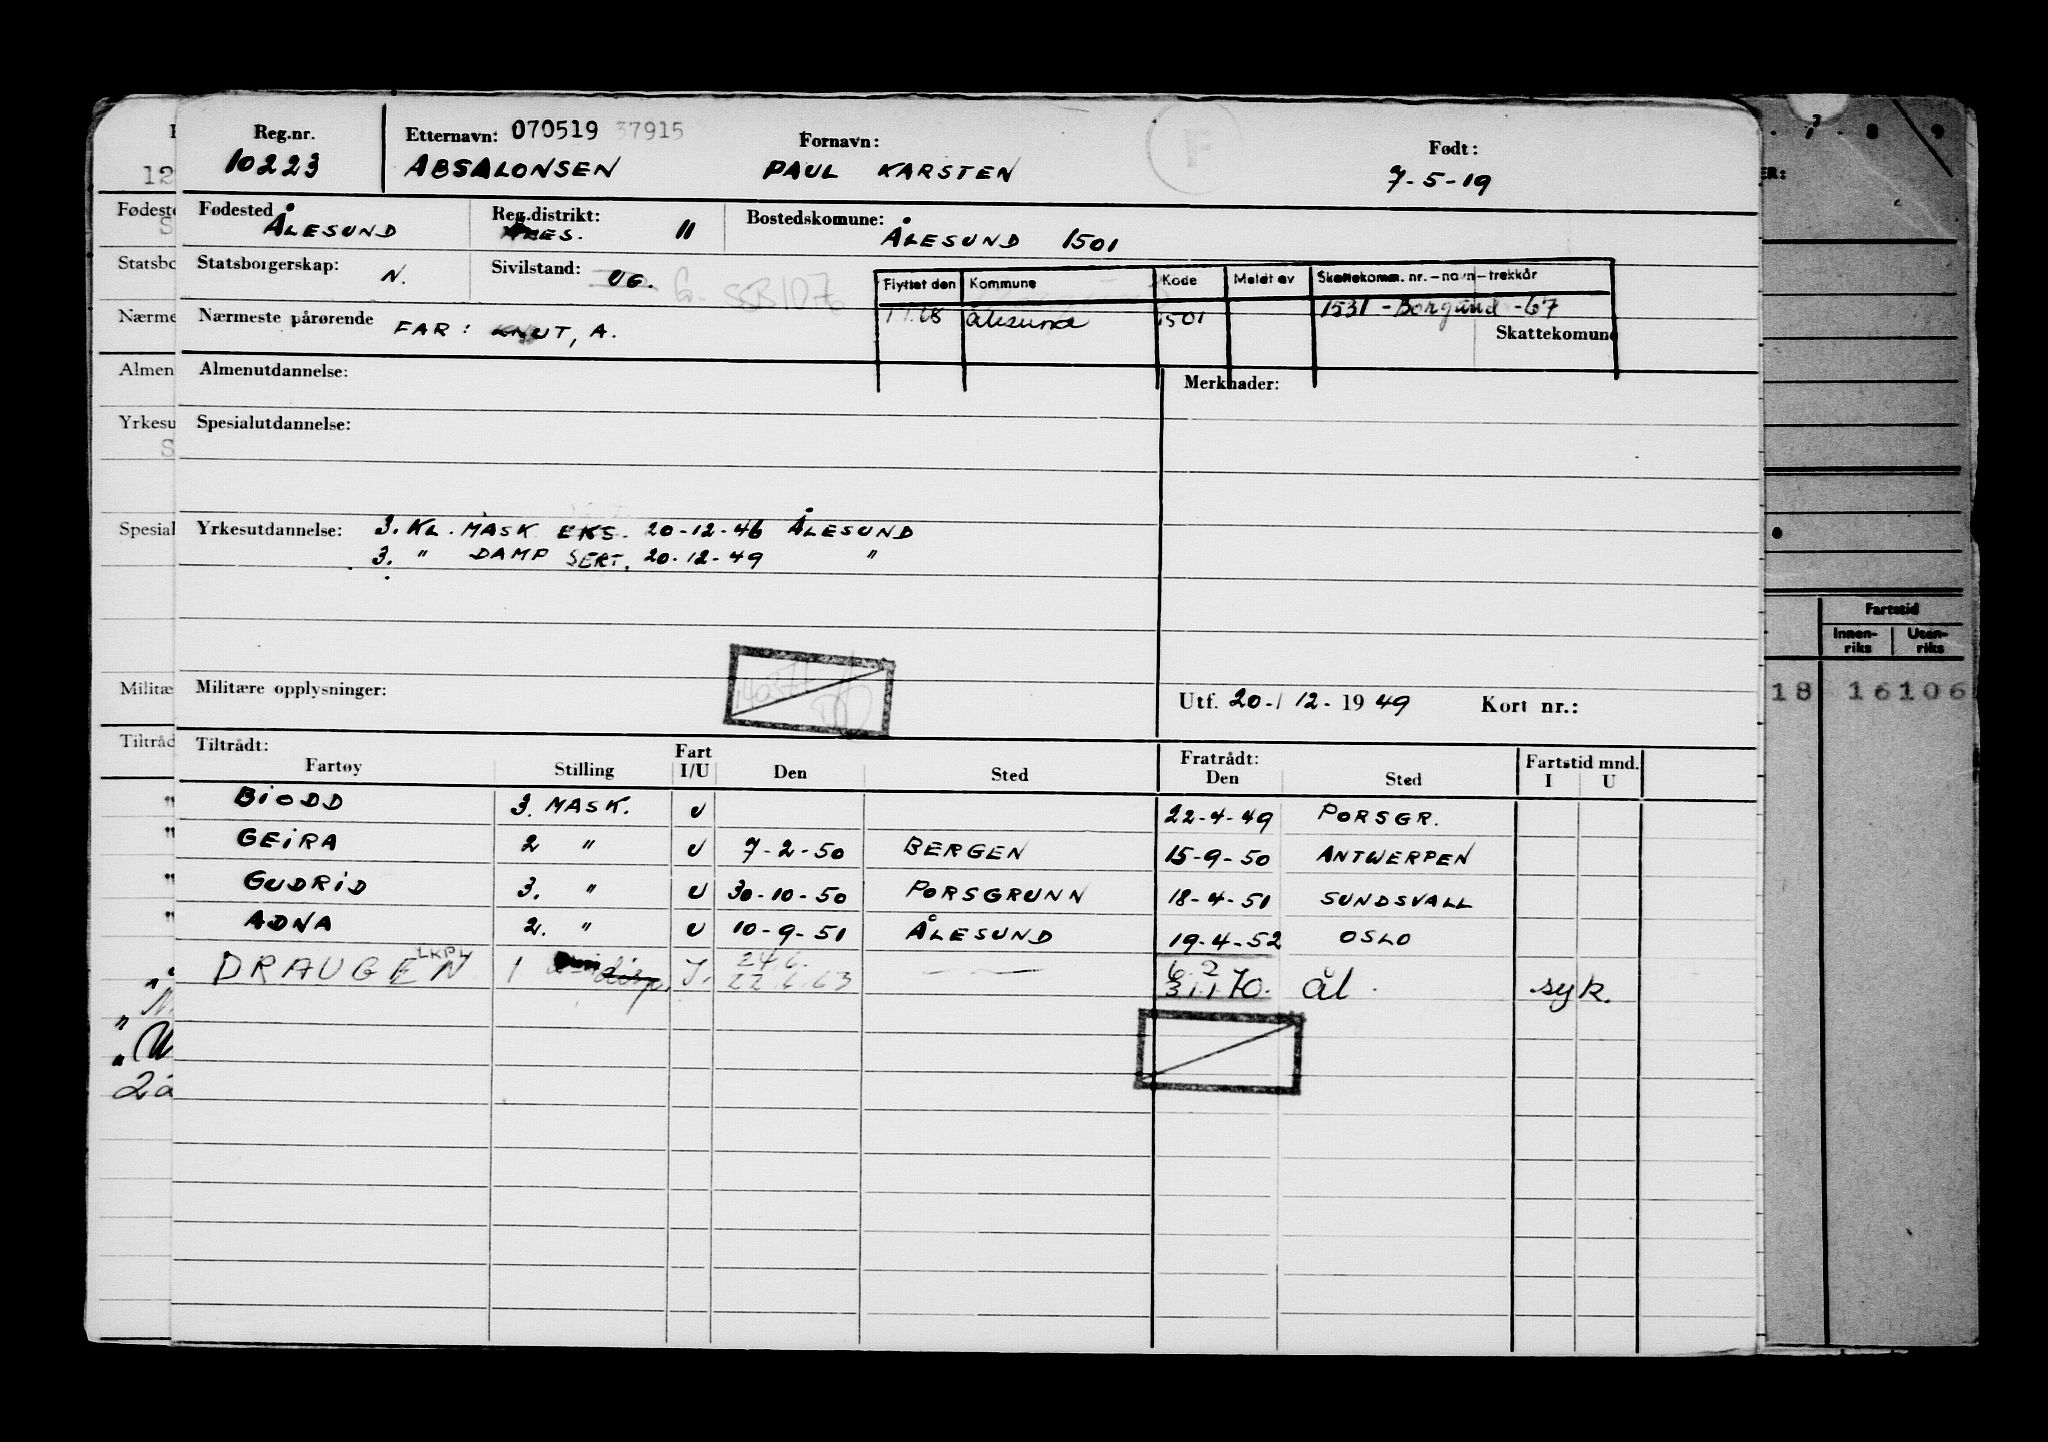 Reg.nr. Etternavn: 070519 37915 Fornavn: Født:
10223 ABSALONSEN PAUL KARSTEN 7-5-19
Fødested ÅLESUND Reg.distrikt: ÅLES. 11 Bostedskomune: ÅLESUND 1501
Statsborgerskap: N. Sivilstand: UG. G. SSB 1076
Flyttet den Kommune Kode Meldt av Skattekomm. nr. - navn - trekkår
Ålesund 1501 1531 - Borgund - 67
Nærmeste pårørende FAR: KNUT, A. Skattekomune
Almenutdannelse: Merknader:
Spesialutdannelse:
Yrkesutdannelse: 3. KL. MASK EKS. 20-12-46 ÅLESUND
3. " DAMP SERT. 20-12-49 "
Militære opplysninger: Utf. 20-12-1949 Kort nr.:
Tiltrådt: Fratrådt:
Fartøy Stilling Fart I/U Den Sted Den Sted Fartstid mnd. I U
BIODD 3. MASK. U 22-4-49 PORSGR.
GEIRA 2 " U 7-2-50 BERGEN 15-9-50 ANTWERPEN
GUDRID 3. " U 30-10-50 PORSGRUNN 18-4-51 SUNDSVALL
ADNA 2. " U 10-9-51 ÅLESUND 19-4-52 OSLO
DRAUGEN LKPL 1 disp. I. 24 6. 22.6.63 6 2 31.1 70. ål. syk.
Fødeste
Statsbo
Nærme
Almen
Yrkesu
Spesial
Militæ
Tiltråd
Fartstid
Innen-riks Uten-riks
18 16 106